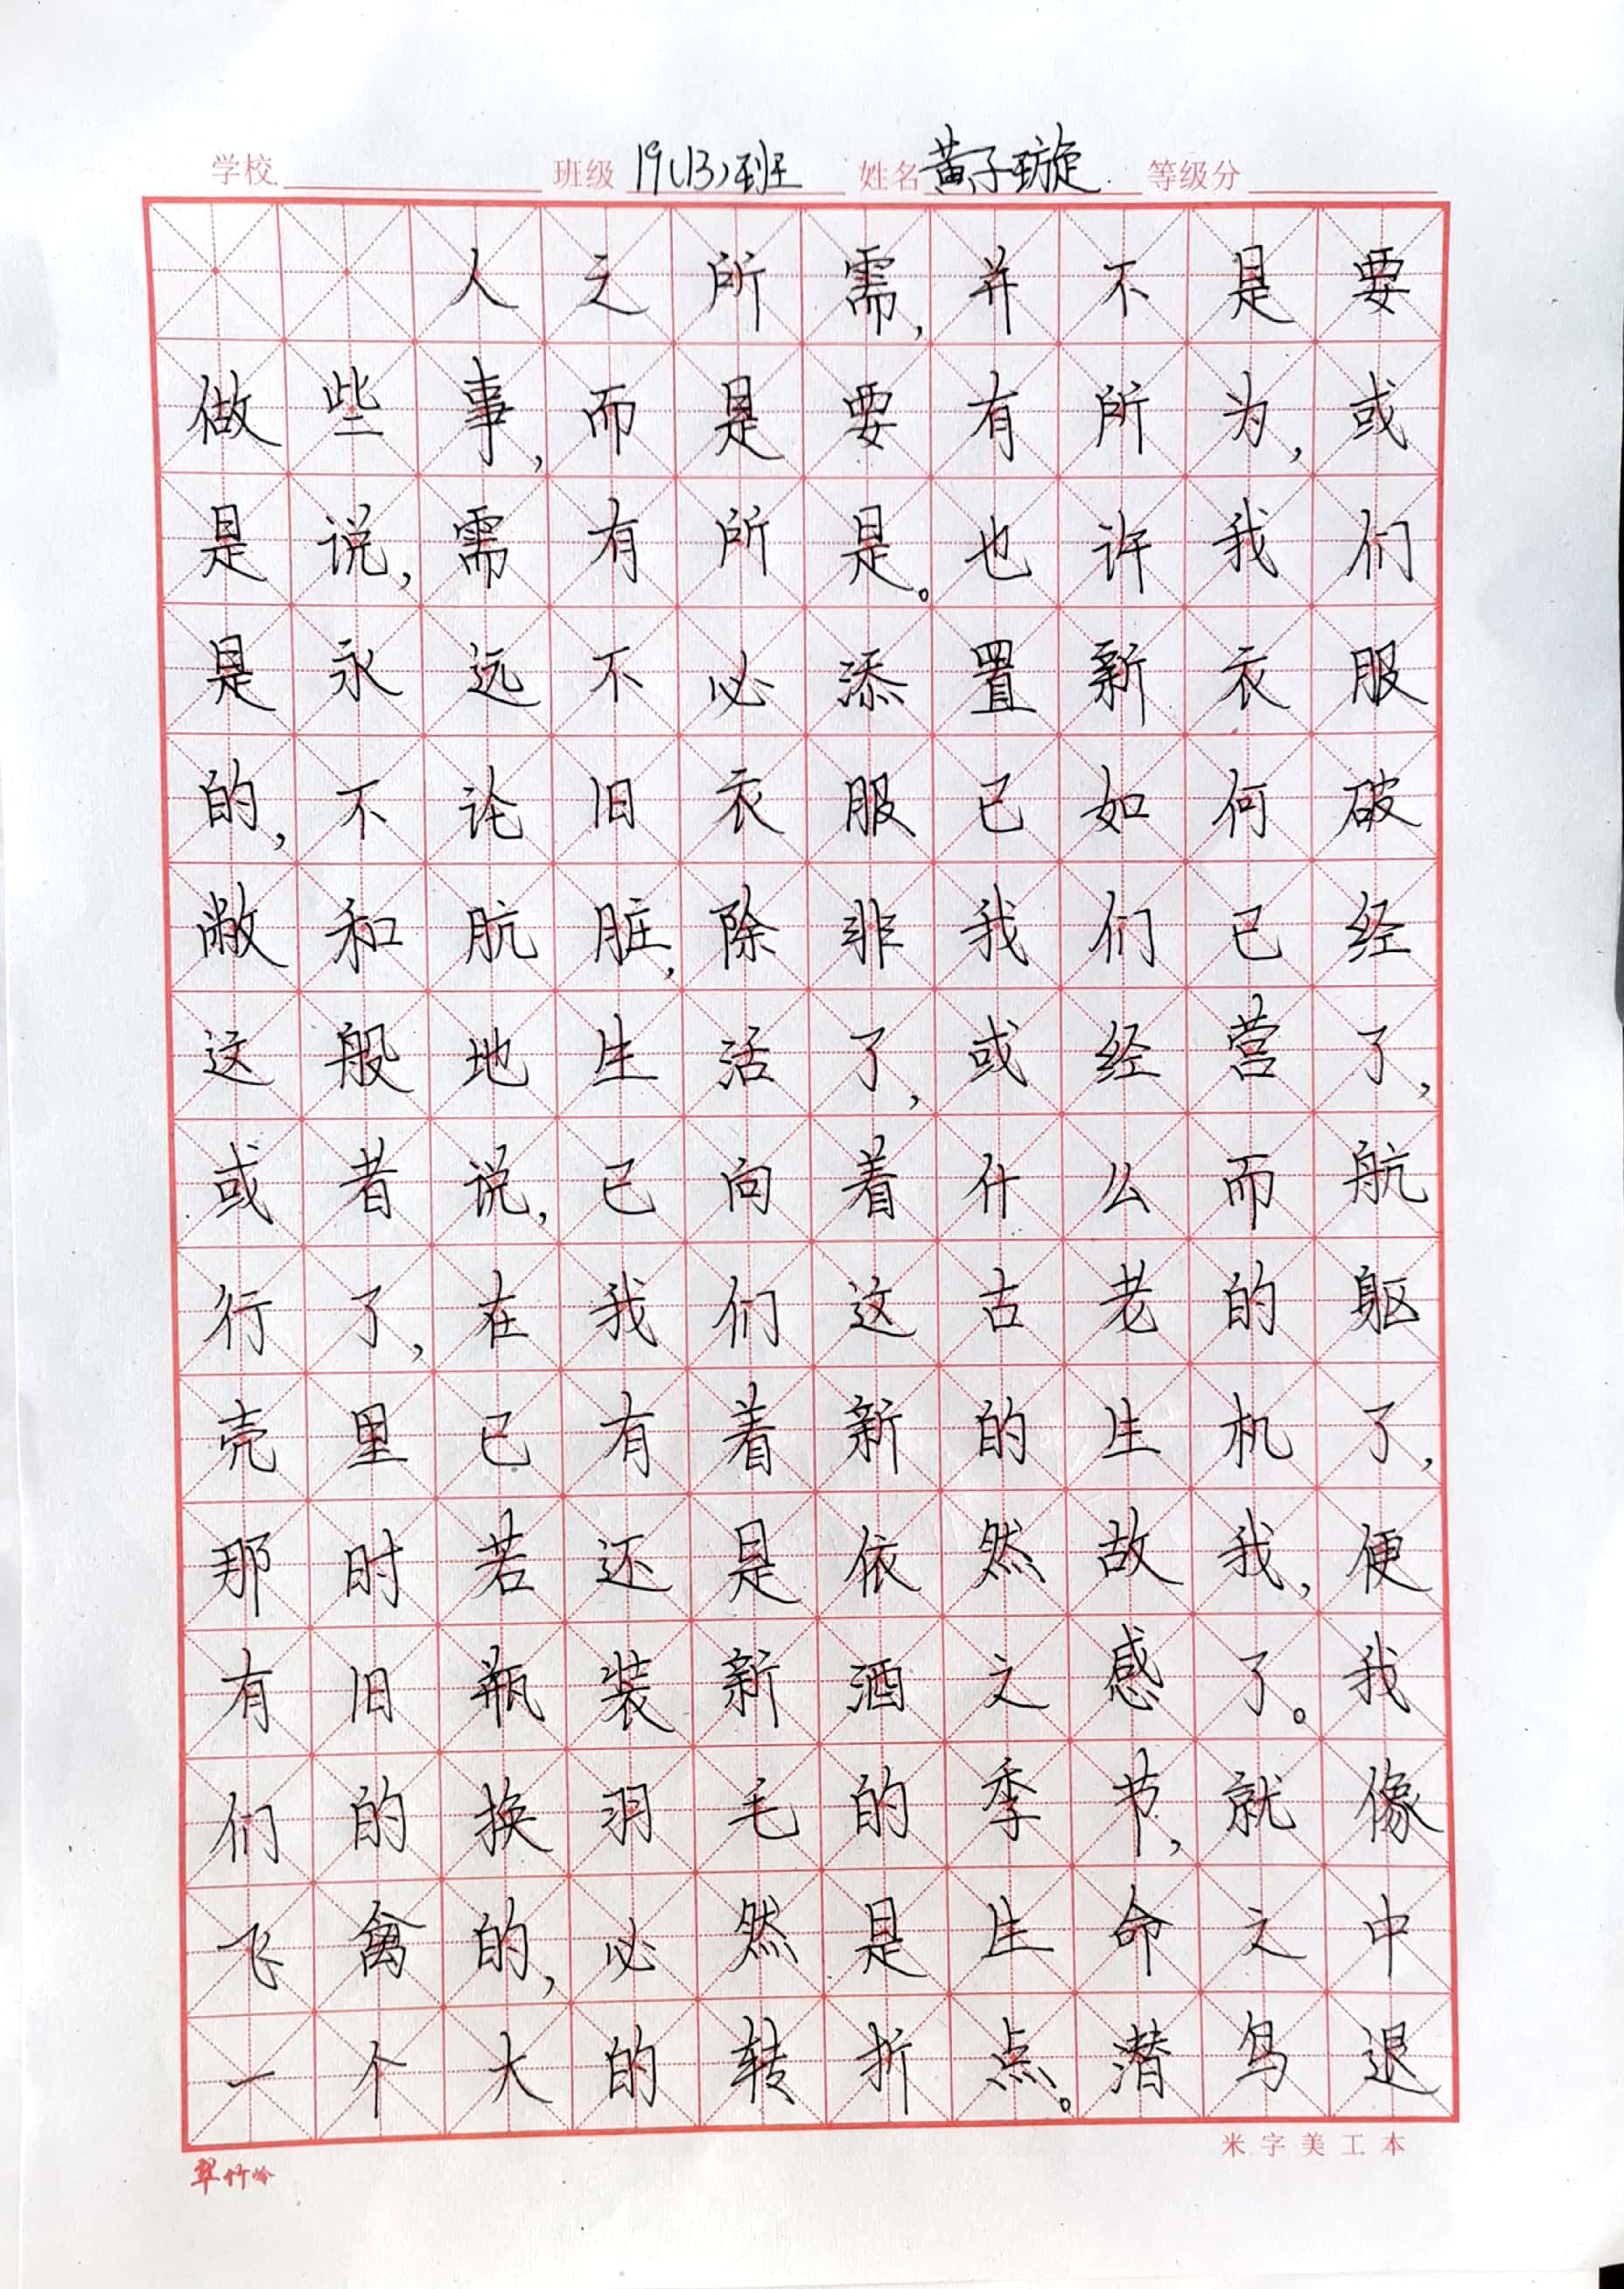 学校 班级 19(13)班 姓名 黄子璇 等级分
人之所需,并不是要
做些事,而是要有所为,或
是说,需有所是。也许我们
是永远不必添置新衣服
的,不论旧衣服已如何破
敝和肮脏,除非我们已经
这般地生活了,或经营了,
或者说,已向着什么而航
行了,在我们这古老的躯
壳里已有着新的生机了,
那时若还是依然故我,便
有旧瓶装新酒之感了。我
们的换羽毛的季节,就像
飞禽的,必然是生命之中
一个大的转折点。潜鸟退
米字美工本
翠竹岭